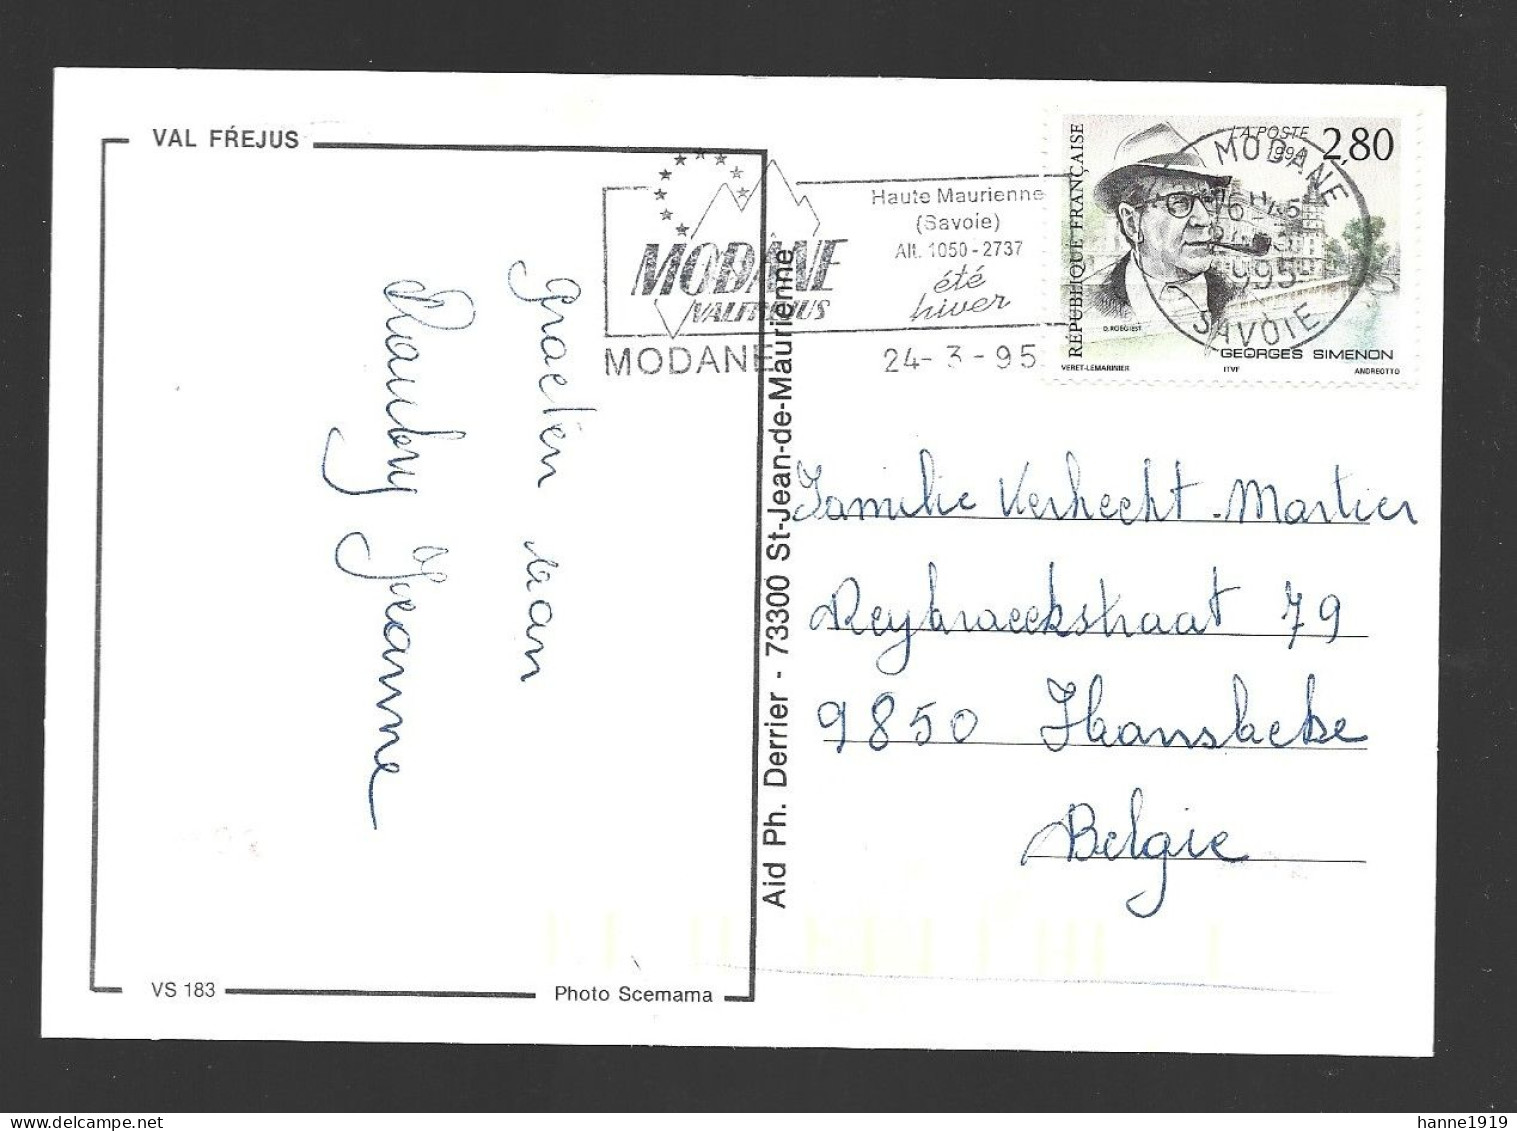 VAL FŔEJUS
MODANE
VALFREJUS
Haute Maurienne
(Savoie)
Alt. 1050-2737
été
hiver
MODANE
24-3-95
RÉPUBLIQUE FRANÇAISE
LA POSTE
1994
2,80
MODANE
16 H 15
24-3
1995
SAVOIE
D. ROEGIEST
GEORGES SIMENON
VERET-LEMARINIER
ITVF
ANDREOTTO
groeten van
Jeanne
Aid Ph. Derrier - 73300 St-Jean-de-Maurienne
Familie Verhecht-Martier
Reybroeckstraat 79
9850 Hansbeke
Belgie
VS 183
Photo Scemama
hanne1919